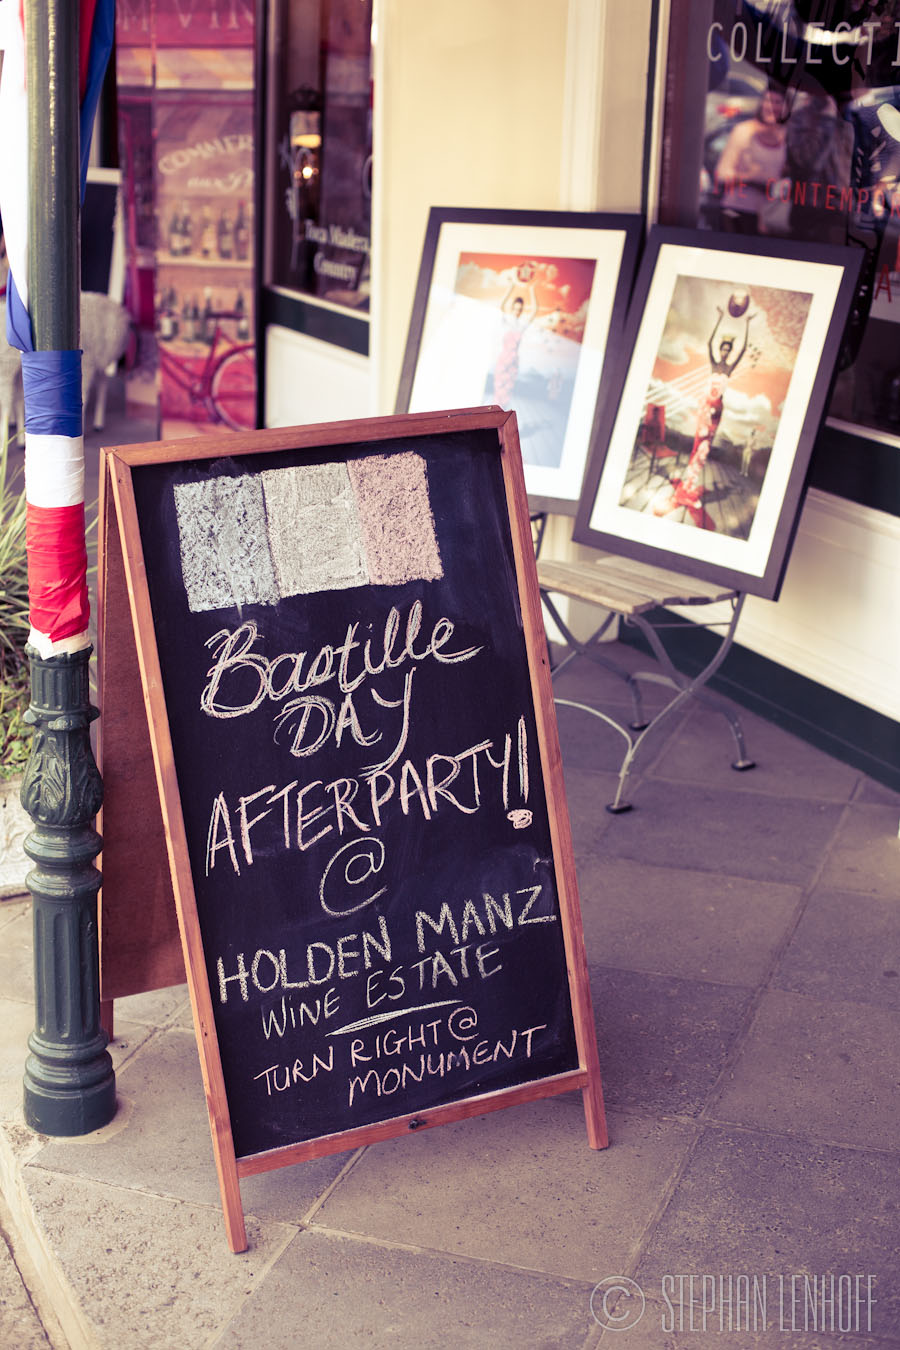 COLLECTI
THE CONTEMPOR
COMMER
Country
Bastille
DAY
AFTERPARTY!
@
HOLDEN MANZ
WINE ESTATE
TURN RIGHT @
MONUMENT
© STEPHAN LENHOFF